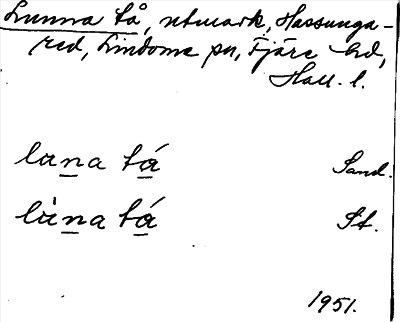 Lunna tå, utmark, Hassunga-
red, Lindome sn, Fjäre hd,
Hall. l.
lana tá Sand.
làna tá St.
1951.